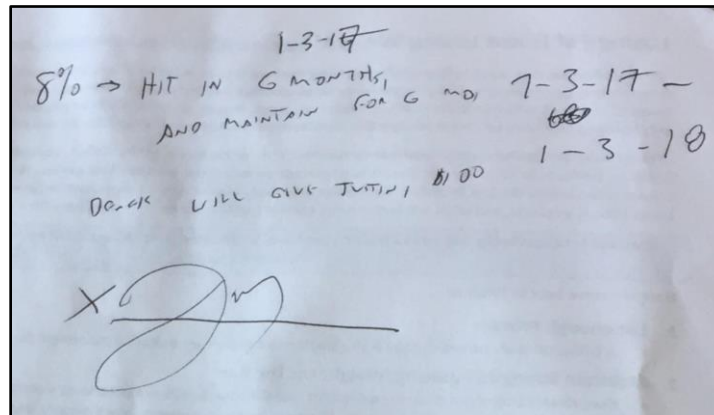 1-3-17
8% → HIT IN 6 MONTHS, 7-3-17 -
AND MAINTAIN FOR 6 MO, 1-3-18
WILL GIVE JUSTIN, $100
X